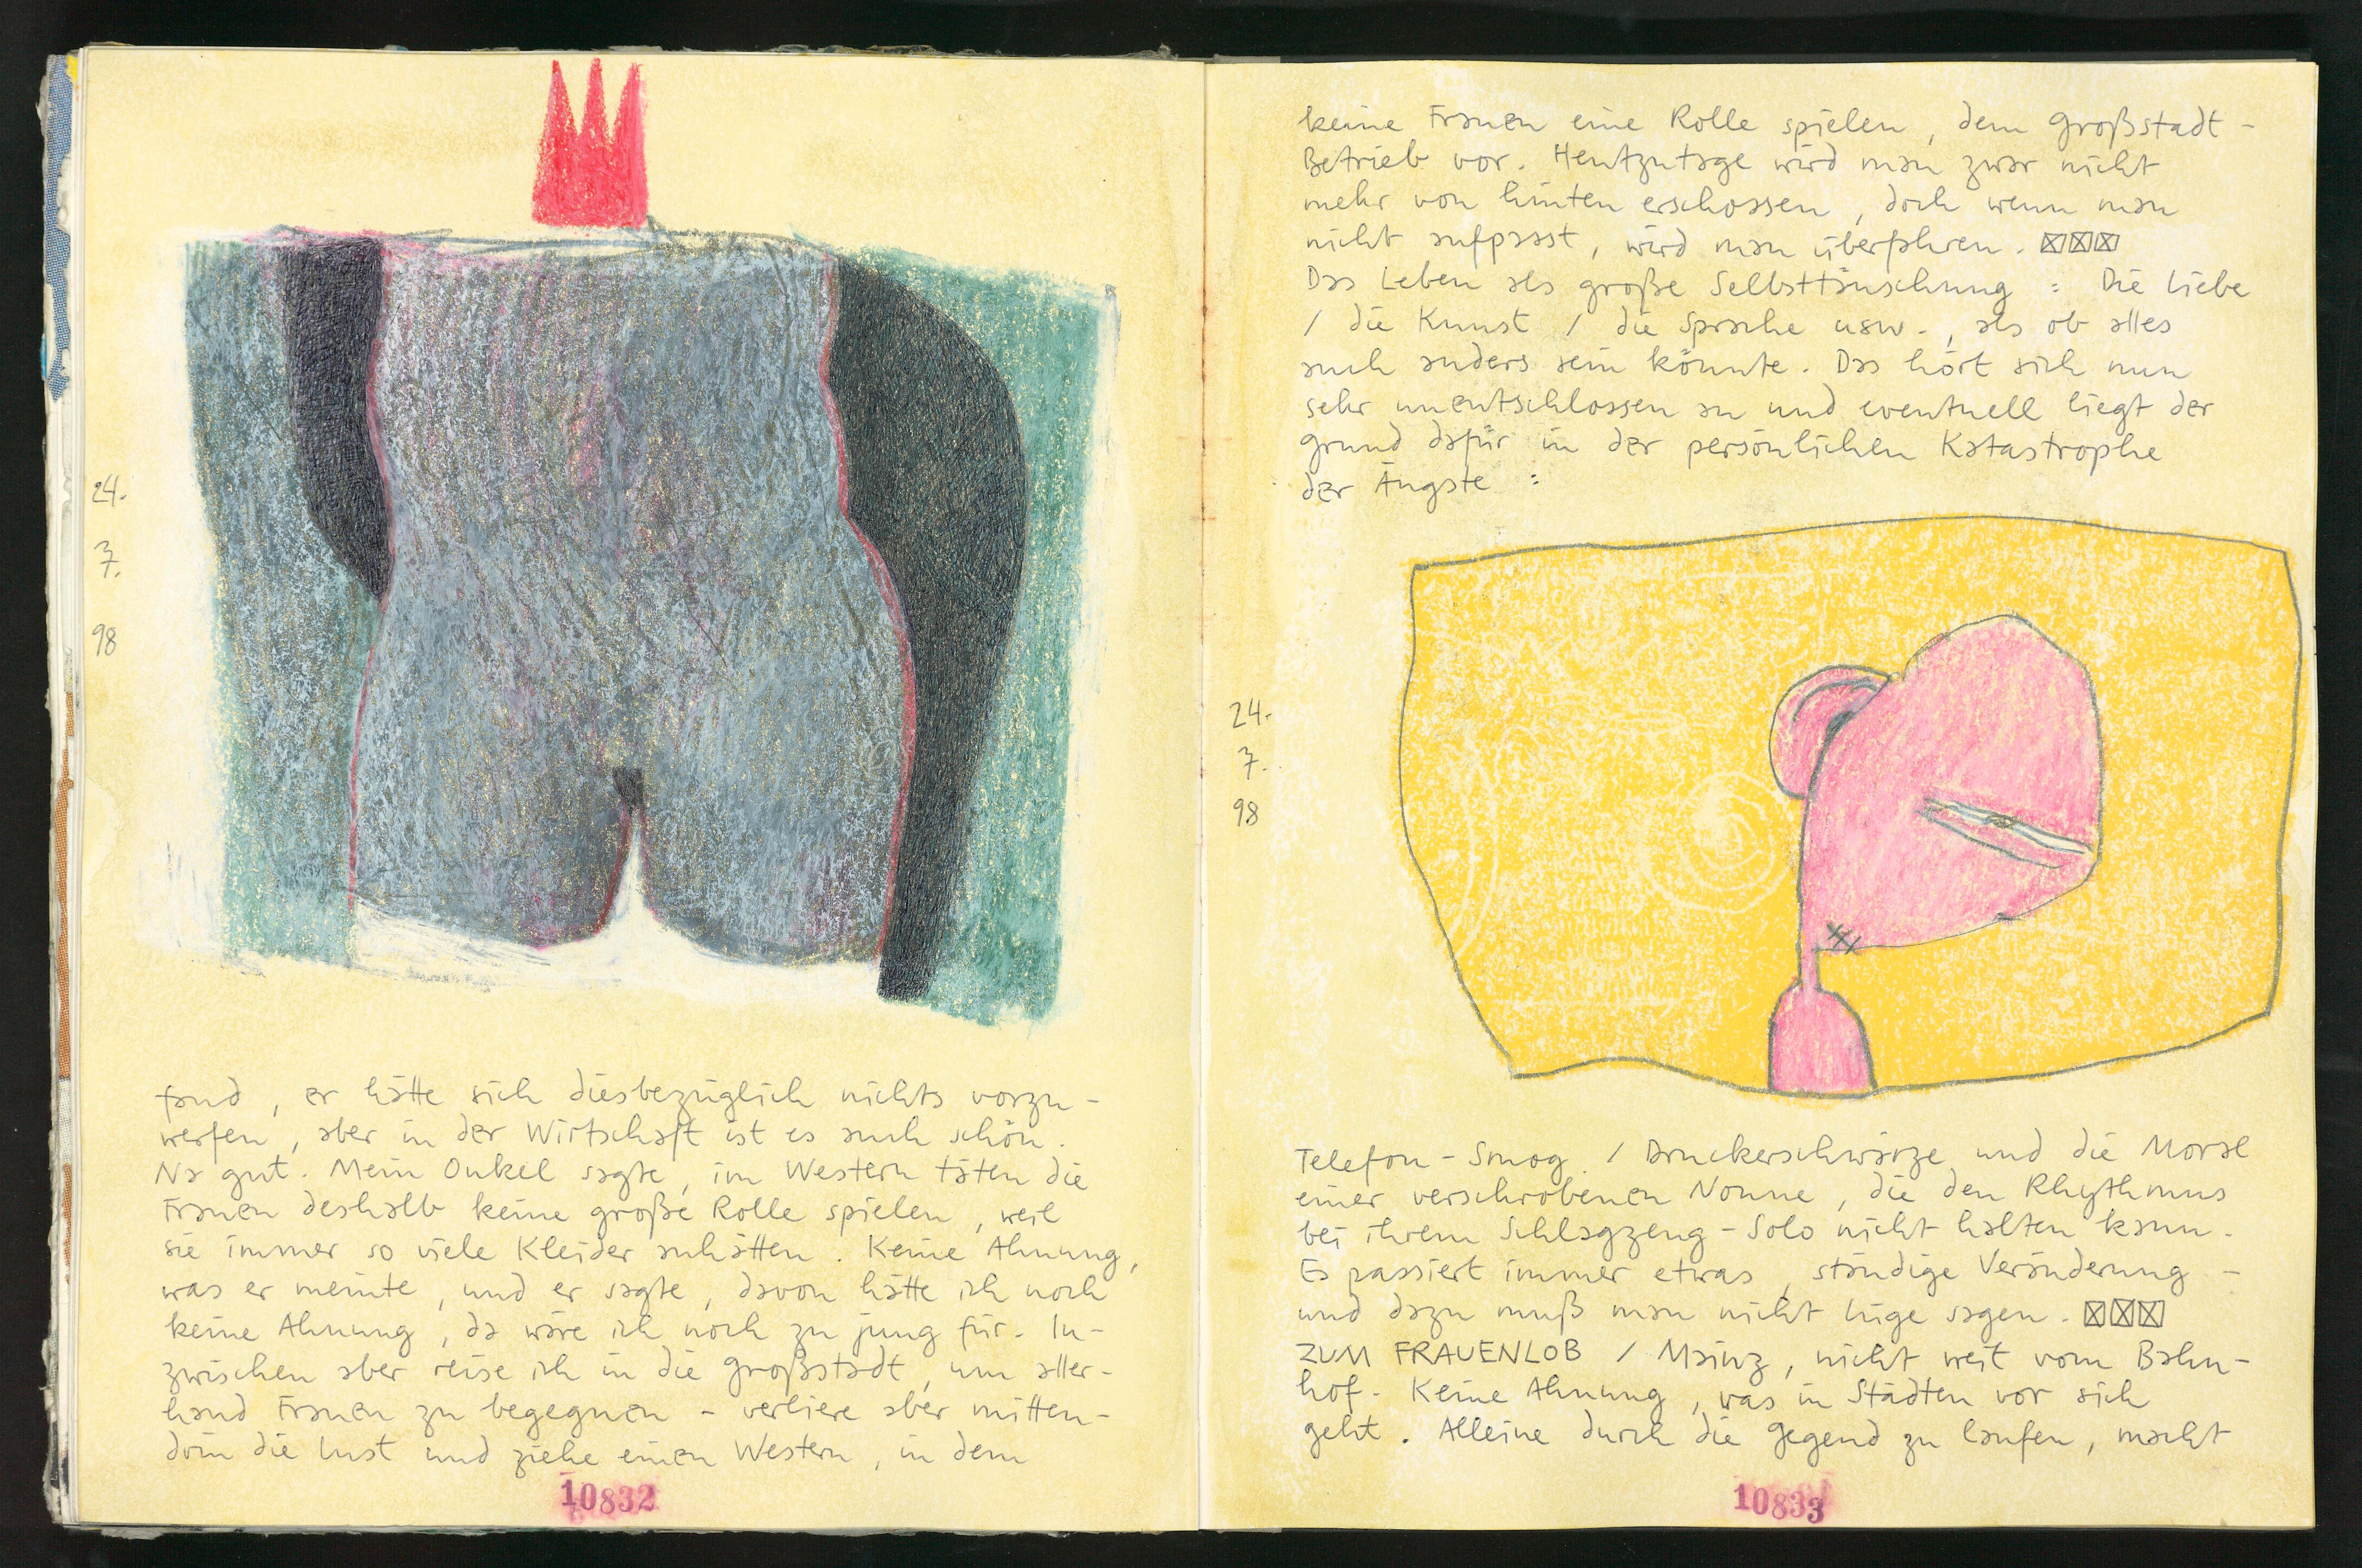 24.
7.
98
fand, er hätte sich diesbezüglich nichts vorzu-
werfen, aber in der Wirtschaft ist es auch schön.
Na gut. Mein Onkel sagte, im Western täten die
Frauen deshalb keine große Rolle spielen, weil
sie immer so viele Kleider anhätten. Keine Ahnung,
was er meinte, und er sagte, davon hätte ich noch
keine Ahnung, da wäre ich noch zu jung für. In-
zwischen aber reise ich in die Großstadt, um aller-
hand Frauen zu begegnen - verliere aber mitten-
drin die Lust und ziehe einen Western, in dem
10832
keine Frauen eine Rolle spielen, dem Großstadt-
Betrieb vor. Heutzutage wird man zwar nicht
mehr von hinten erschossen, doch wenn man
nicht aufpasst, wird man überfahren.
Das Leben als große Selbsttäuschung : Die Liebe
/ die Kunst / die Sprache usw., als ob alles
auch anders sein könnte. Das hört sich nun
sehr unentschlossen an und eventuell liegt der
Grund dafür in der persönlichen Katastrophe
der Ängste :
24.
7.
98
Telefon-Smog. / Druckerschwärze und die Moral
einer verschrobenen Nonne, die den Rhythmus
bei ihrem Schlagzeug-Solo nicht halten kann.
Es passiert immer etwas, ständige Veränderung -
und dazu muß man nicht lüge sagen.
ZUM FRAUENLOB / Mainz, nicht weit vom Bahn-
hof. Keine Ahnung, was in Städten vor sich
geht. Alleine durch die Gegend zu laufen, macht
10833